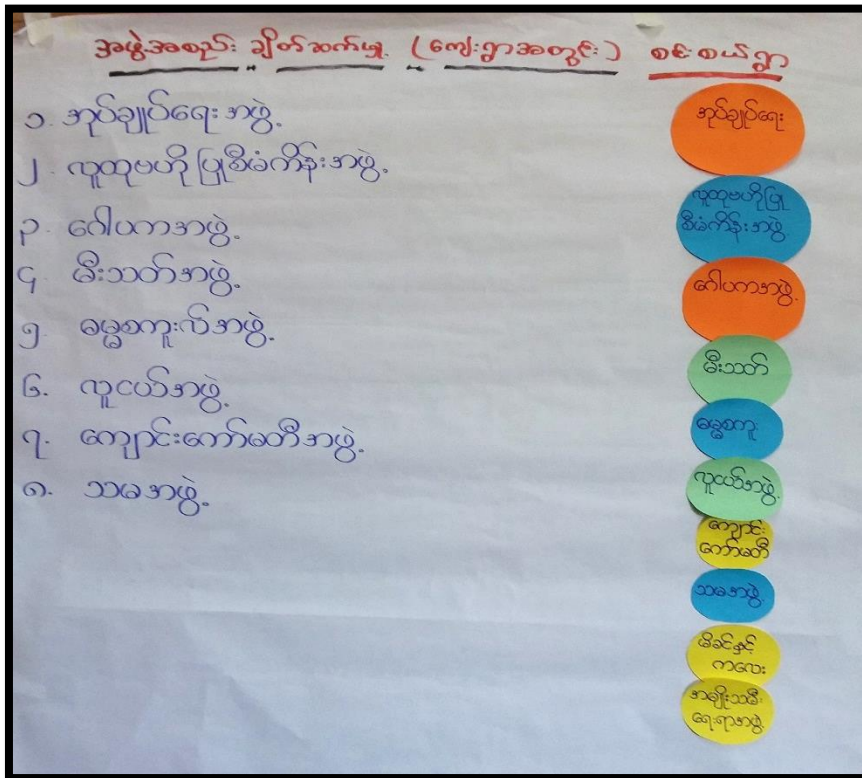 အဖွဲ့အစည်း ချိတ်ဆက်မှု (ကျေးရွာအတွင်း) စင်းစယ်ရွာ
၁. အုပ်ချုပ်ရေးအဖွဲ့
၂. လူထုဗဟိုပြုစီမံကိန်းအဖွဲ့
၃. ဂေါပကအဖွဲ့
၄. မီးသတ်အဖွဲ့
၅. ဓမ္မစကူးလ်အဖွဲ့
၆. လူငယ်အဖွဲ့
၇. ကျောင်းကော်မတီအဖွဲ့
၈. သမအဖွဲ့
အုပ်ချုပ်ရေး
လူထုဗဟိုပြု
စီမံကိန်းအဖွဲ့
ဂေါပကအဖွဲ့
မီးသတ်
ဓမ္မစကူး
လူငယ်အဖွဲ့
ကျောင်း
ကော်မတီ
သမအဖွဲ့
မိခင်နှင့်
ကလေး
အမျိုးသမီး
ရေးရာအဖွဲ့